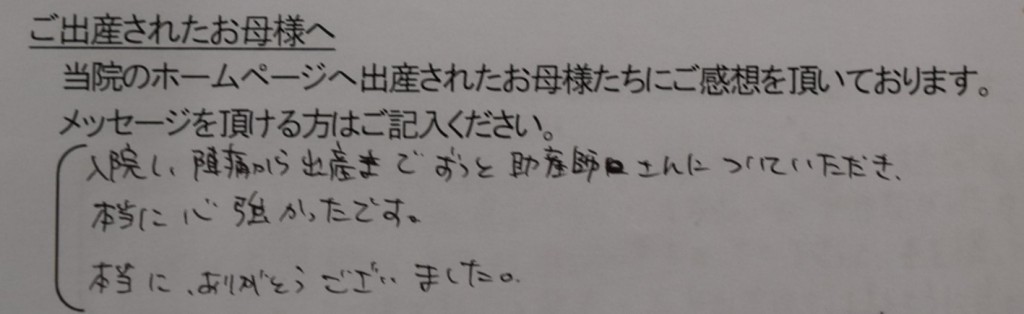 ご出産されたお母様へ
当院のホームページへ出産されたお母様たちにご感想を頂いております。
メッセージを頂ける方はご記入ください。
入院し、陣痛から出産までずっと助産師さんについていただき、
本当に心強かったです。
本当に、ありがとうございました。